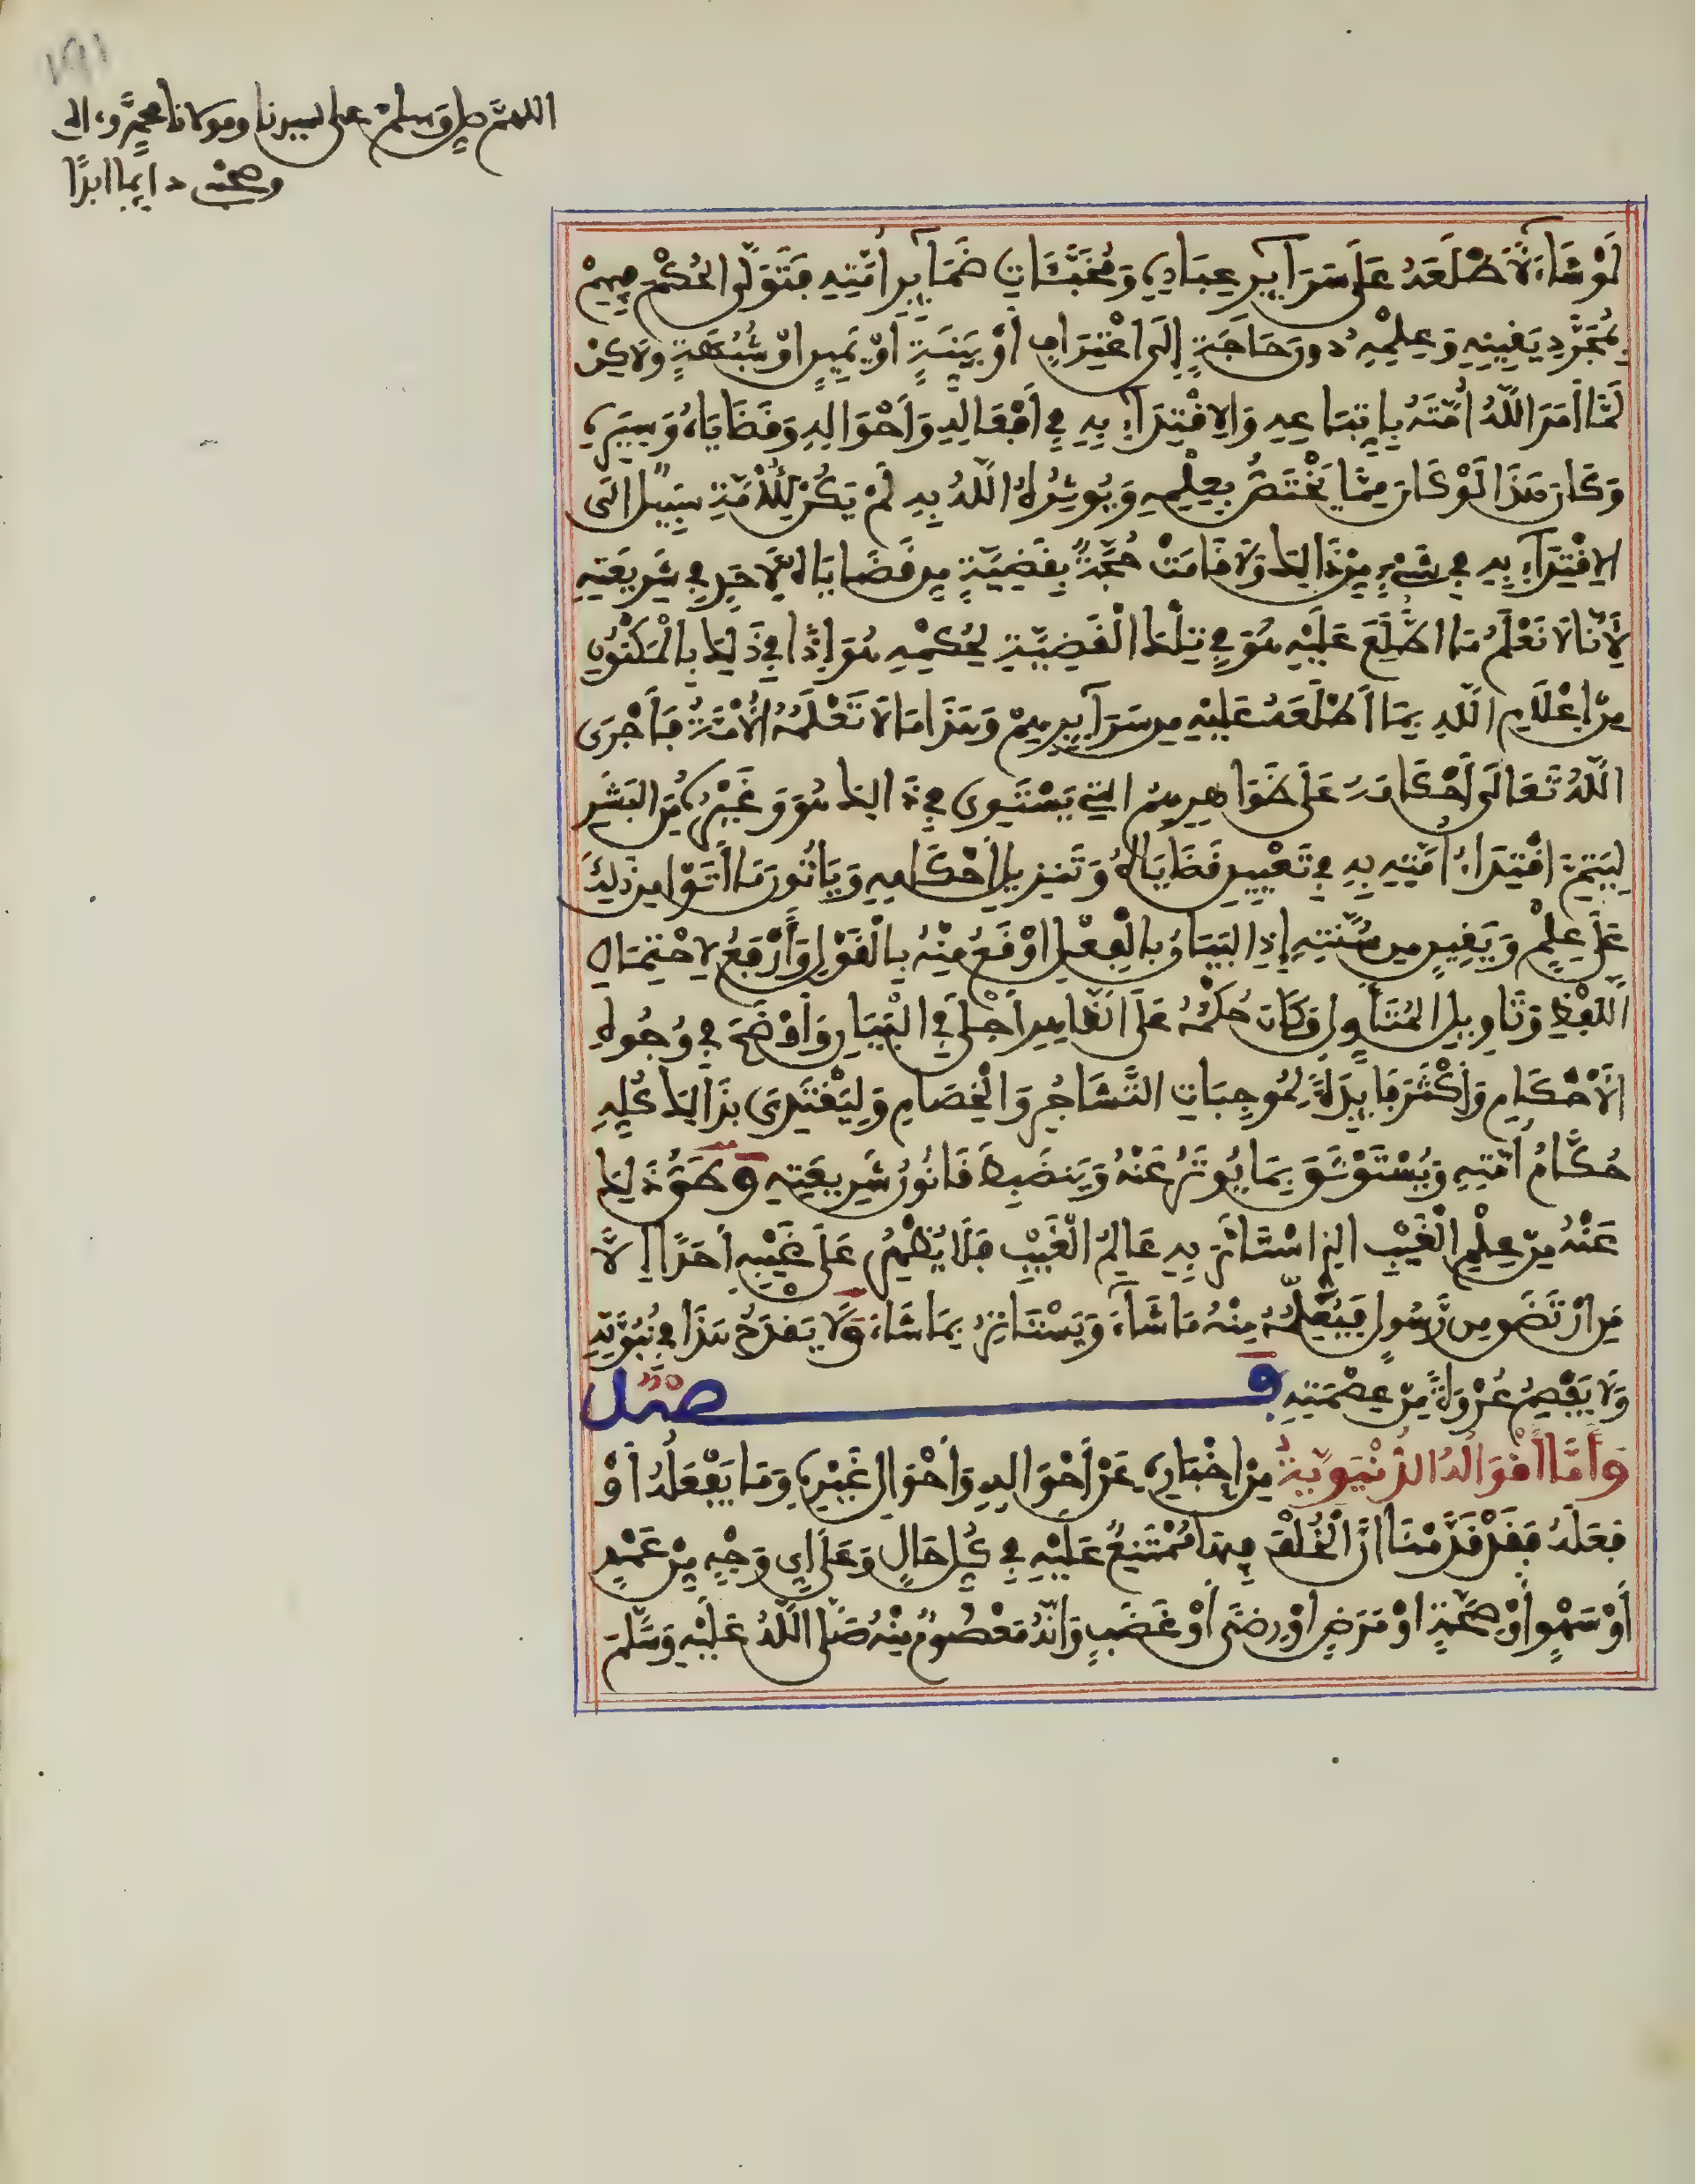 ١٩١
اللهم صل وسلم على سيدنا ومولانا محمد وءاله
وصحبه دايما ابدًا
لَوْ شَاءَ لَأَطْلَعَهُ عَلَى سَرَآيِرِ عِبَادِهِ وَمُخَبَّئَاتِ ضَمَآيِرِ أُمَّتِهِ فَتَوَلَّى الْحُكْمَ بَيْنَهُمْ
بِمُجَرَّدِ يَقِينِهِ وَعِلْمِهِ دُونَ حَاجَةٍ إِلَى اعْتِرَافٍ أَوْ بَيِّنَةٍ أَوْ يَمِينٍ أَوْ شُبْهَةٍ وَلَاكِنْ
لَمَّا أَمَرَ اللَّهُ أُمَّتَهُ بِاتِّبَاعِهِ وَالِاقْتِدَآءِ بِهِ فِي أَفْعَالِهِ وَأَحْوَالِهِ وَقَضَايَاهُ وَسِيَرِهِ
وَكَانَ هَذَا لَوْ كَانَ مِمَّا يَخْتَصُّ بِعِلْمِهِ وَيُوثِرُهُ اللَّهُ بِهِ لَمْ يَكُنْ لِلْأُمَّةِ سَبِيلٌ إِلَى
الِاقْتِدَآءِ بِهِ فِي شَيْءٍ مِنْ ذَالِكَ وَلَا قَامَتْ حُجَّةٌ بِقَضِيَّةٍ مِن قَضَايَاهُ لِأَحَدٍ فِي شَرِيعَتِهِ
لِأَنَّا لَا نَعْلَمُ مَا اطُّلِعَ عَلَيْهِ هُوَ فِي تِلْكَ الْقَضِيَّةِ لِحُكْمِهِ هُوَ إِذًا فِي ذَلِكَ بِالْمَكْنُونِ
مِنْ إِعْلَامِ اللَّهِ بِمَا أَطْلَعَهُ عَلَيْهِ مِن سَرَآيِرِهِمْ وَهَذَا مَا لَا تَعْلَمُهُ الْأُمَّةُ فَأَجْرَى
اللَّهُ تَعَالَى أَحْكَامَهُ عَلَى ظَوَاهِرِهِمُ الَّتِي يَسْتَوِي فِي ذَالِكَ هُوَ وَغَيْرُهُ مِنَ الْبَشَرِ
لِيَتِمَّ اقْتِدَاءُ أُمَّتِهِ بِهِ فِي تَعْيِينِ قَضَايَاهُ وَتَنزِيلِ أَحْكَامِهِ وَيَاتُونَ مَا أَتَوْا مِن ذَلِكَ
عَلَى عِلْمٍ وَيَقِينٍ مِن سُنَّتِهِ إِذِ الْبَيَانُ بِالْفِعْلِ أَوْقَعُ مِنْهُ بِالْقَوْلِ وَأَرْفَعُ لِاحْتِمَالِ
اللَّفْظِ وَتَاوِيلِ الْمُتَأَوِّلِ وَكَانَ حُكْمُهُ عَلَى الظَّاهِرِ أَجْلَى فِي الْبَيَانِ وَأَوْضَحَ فِي وُجُوهِ
الْأَحْكَامِ وَأَكْثَرَ فَايِدَةً لِمُوجِبَاتِ التَّشَاجُرِ وَالْخِصَامِ وَلِيَقْتَدِيَ بِذَالِكَ كُلِّهِ
حُكَّامُ أُمَّتِهِ وَيُسْتَوْثَقَ بِمَا يُوثَرُ عَنْهُ وَيَنضَبِطَ قَانُونُ شَرِيعَتِهِ وَطَيُّ ذَلِكَ
عَنْهُ مِنْ عِلْمِ الْغَيْبِ الَّذِي اسْتَأْثَرَ بِهِ عَالِمُ الْغَيْبِ فَلَا يُظْهِرُ عَلَى غَيْبِهِ أَحَدًا إِلَّا
مَنِ ارْتَضَى مِن رَّسُولٍ فَيُعْلِمُهُ مِنْهُ مَا شَآءَ وَيَسْتَاثِرُ بِمَا شَاءَ وَلَا يَقْدَحُ هَذَا فِي نُبُوَّتِهِ
وَلَا يَفْصِمُ عُرْوَةً مِنْ عِصْمَتِهِ فَصْلٌ
وَأَمَّا أَقْوَالُهُ الدُّنْيَوِيَّةُ مِنْ إِخْبَارِهِ عَنْ أَحْوَالِهِ وَأَحْوَالِ غَيْرِهِ وَمَا يَفْعَلُهُ أَوْ
فَعَلَهُ فَقَدْ قَدَّمْنَا أَنَّ الْخُلْفَ فِيهَا مُمْتَنِعٌ عَلَيْهِ فِي كُلِّ حَالٍ وَعَلَى أَيِّ وَجْهٍ مِنْ عَمْدٍ
أَوْ سَهْوٍ أَوْ صِحَّةٍ أَوْ مَرَضٍ أَوْ رِضًى أَوْ غَضَبٍ وَأَنَّهُ مَعْصُومٌ مِنْهُ صَلَّى اللَّهُ عَلَيْهِ وَسَلَّمَ